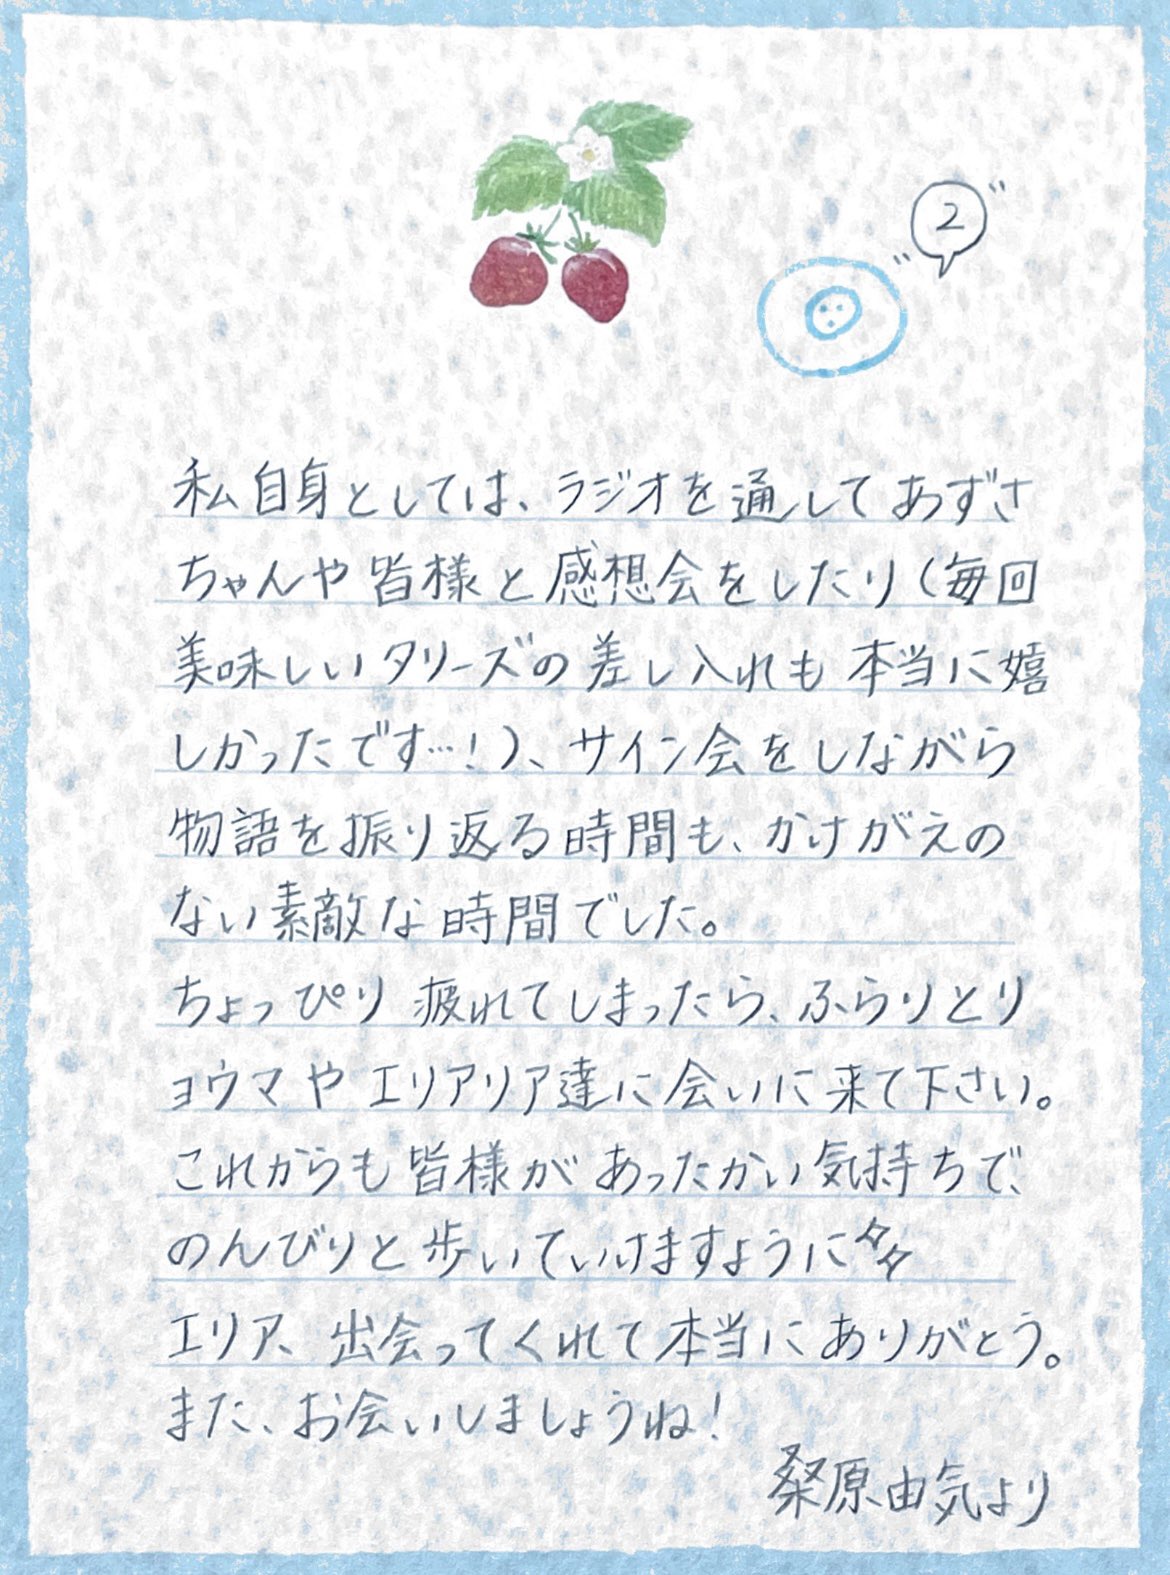 2
私自身としては、ラジオを通してあずさ
ちゃんや皆様と感想会をしたり(毎回
美味しいタリーズの差し入れも本当に嬉
しかったです…!)、サイン会をしながら
物語を振り返る時間も、かけがえの
ない素敵な時間でした。
ちょっぴり疲れてしまったら、ふらりとリ
ョウマやエリアリア達に会いに来て下さい。
これからも皆様があったかい気持ちで、
のんびりと歩いていけますように
エリア、出会ってくれて本当にありがとう。
また、お会いしましょうね!
桑原由気より